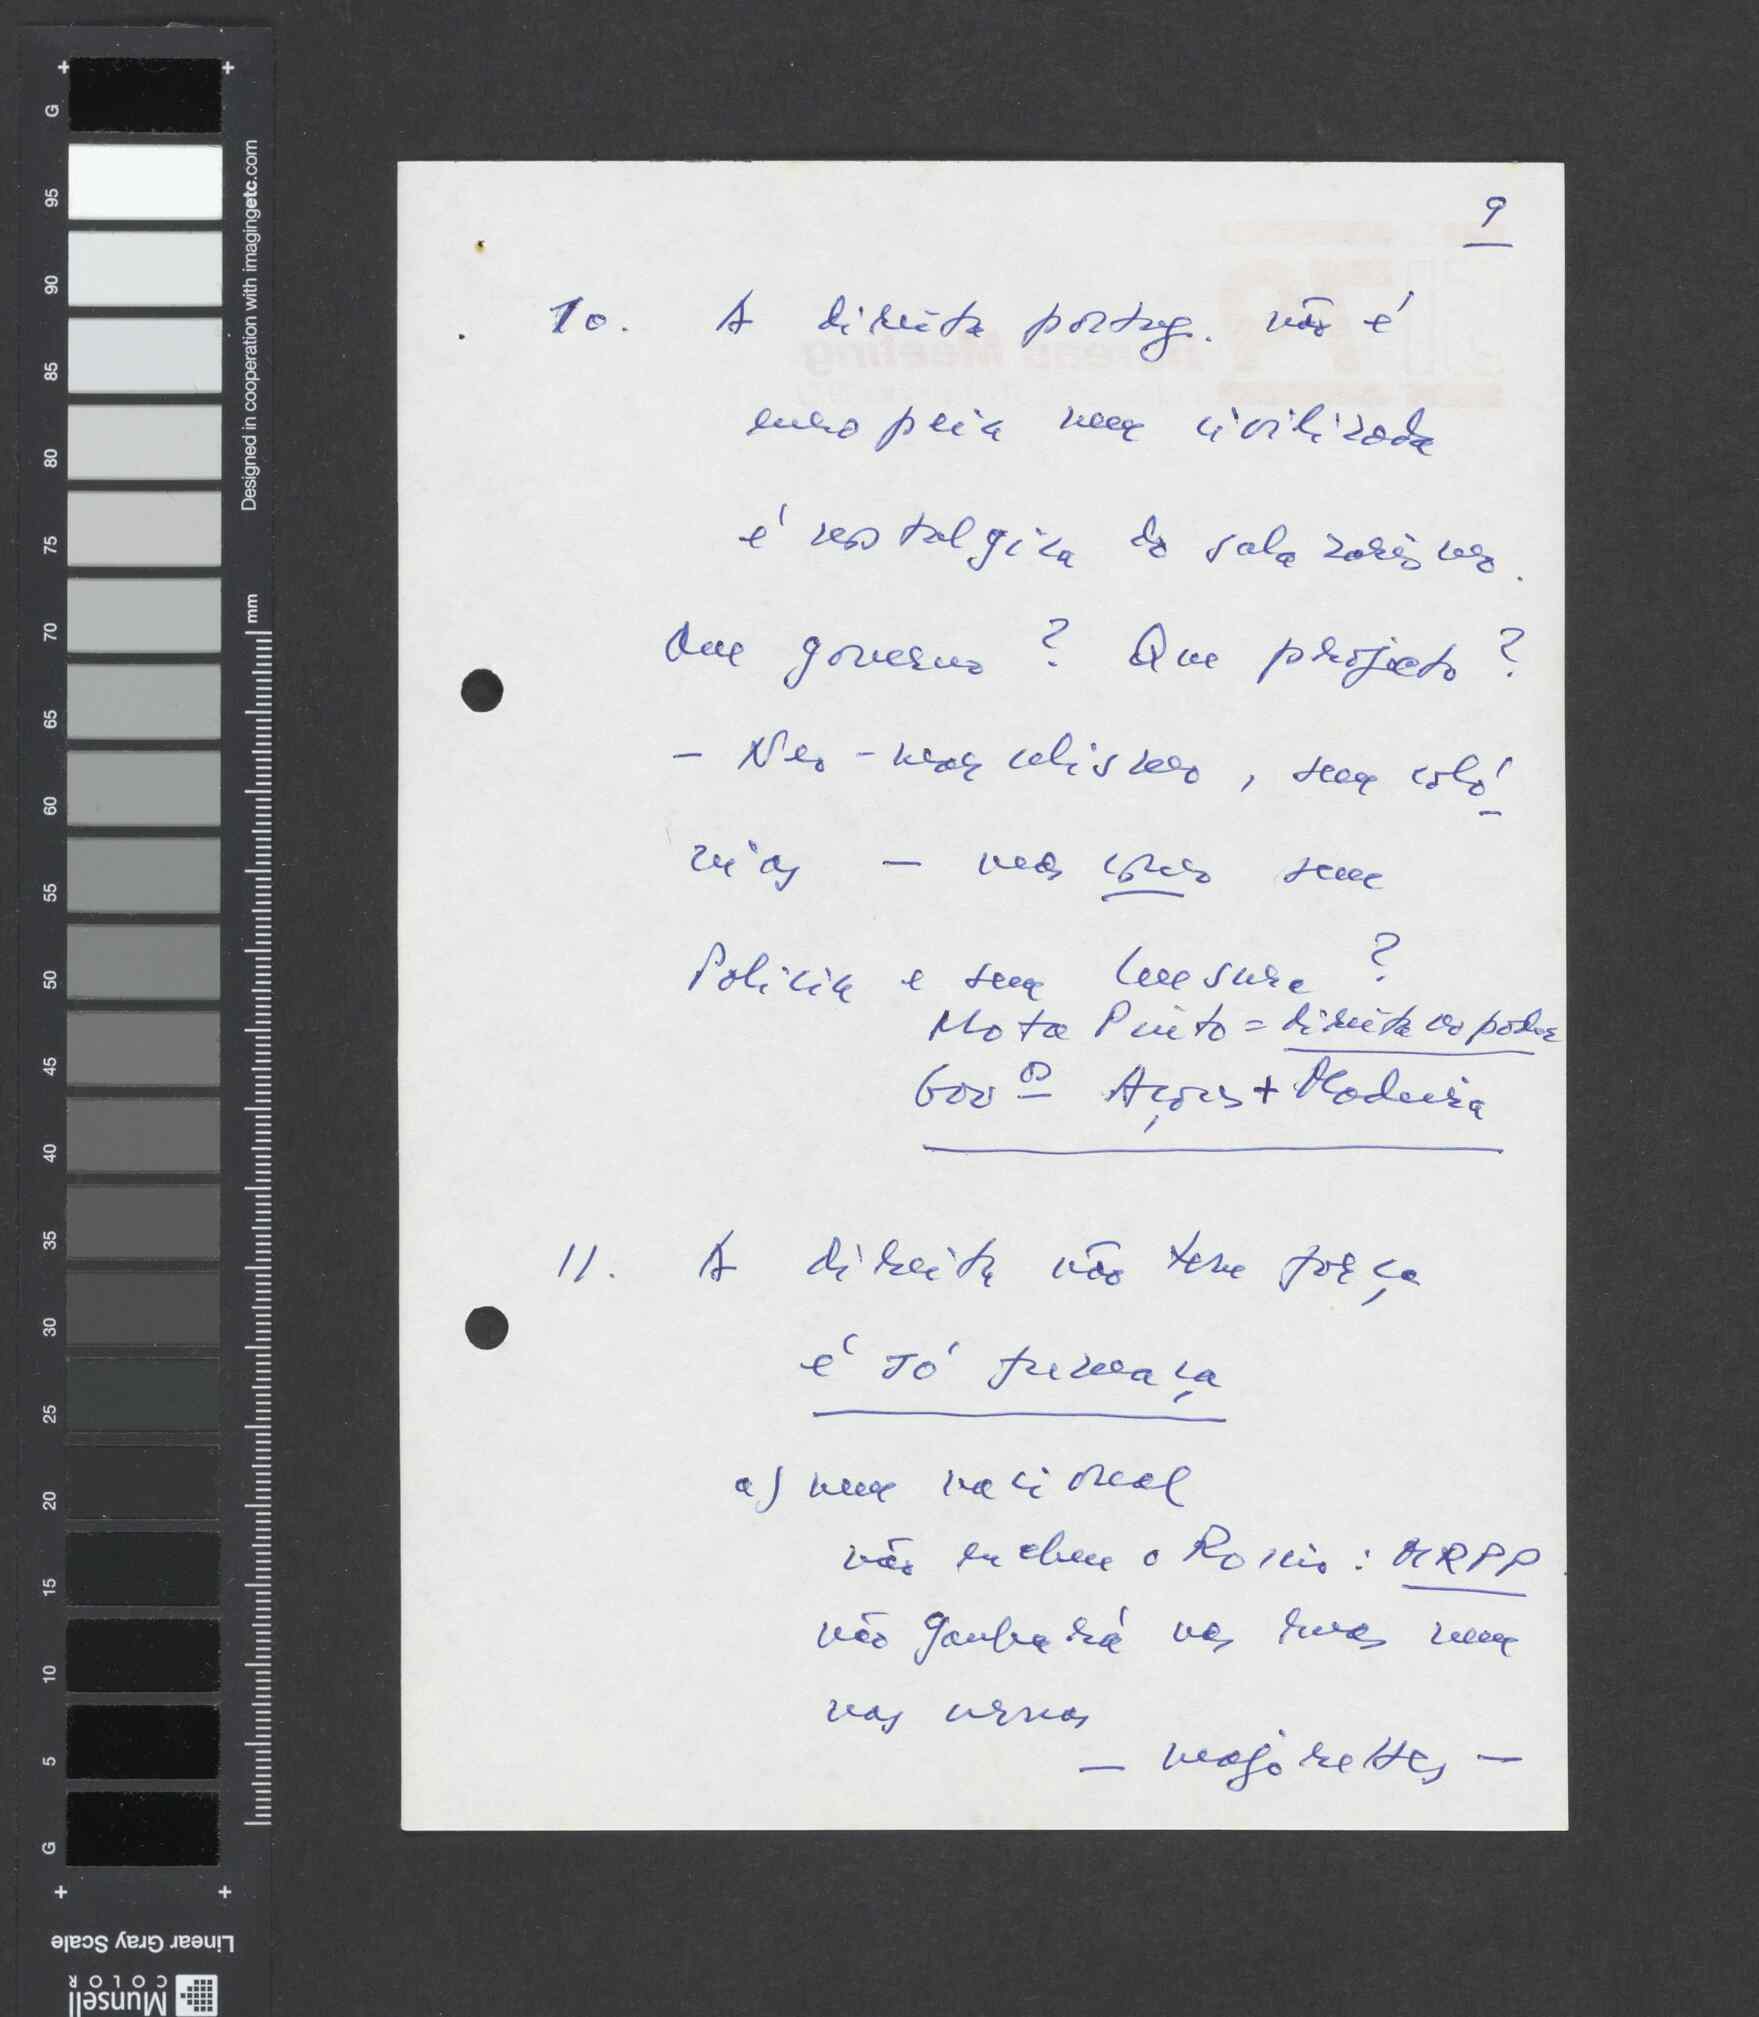 9
10. A direita portug. não é
europeia nem civilizada
é nostalgica do salazarismo.
Que governo? Que projecto?
– Neo-marcelismo, sem coló-
nias – mas como sem
Policia e sem Censura?
Mota Pinto = direita no poder
Gov.º Açores + Madeira
11. A direita não tem força
é só fumaça
a) nem nacional
não enchem o Rossio: MRPP
não ganhará nas ruas nem
nas urnas
– majorettes –
G
95
90
85
80
75
70
65
60
55
50
45
40
35
30
25
20
15
10
5
G
Designed in cooperation with imagingetc.com
mm
Linear Gray Scale
Munsell
COLOR